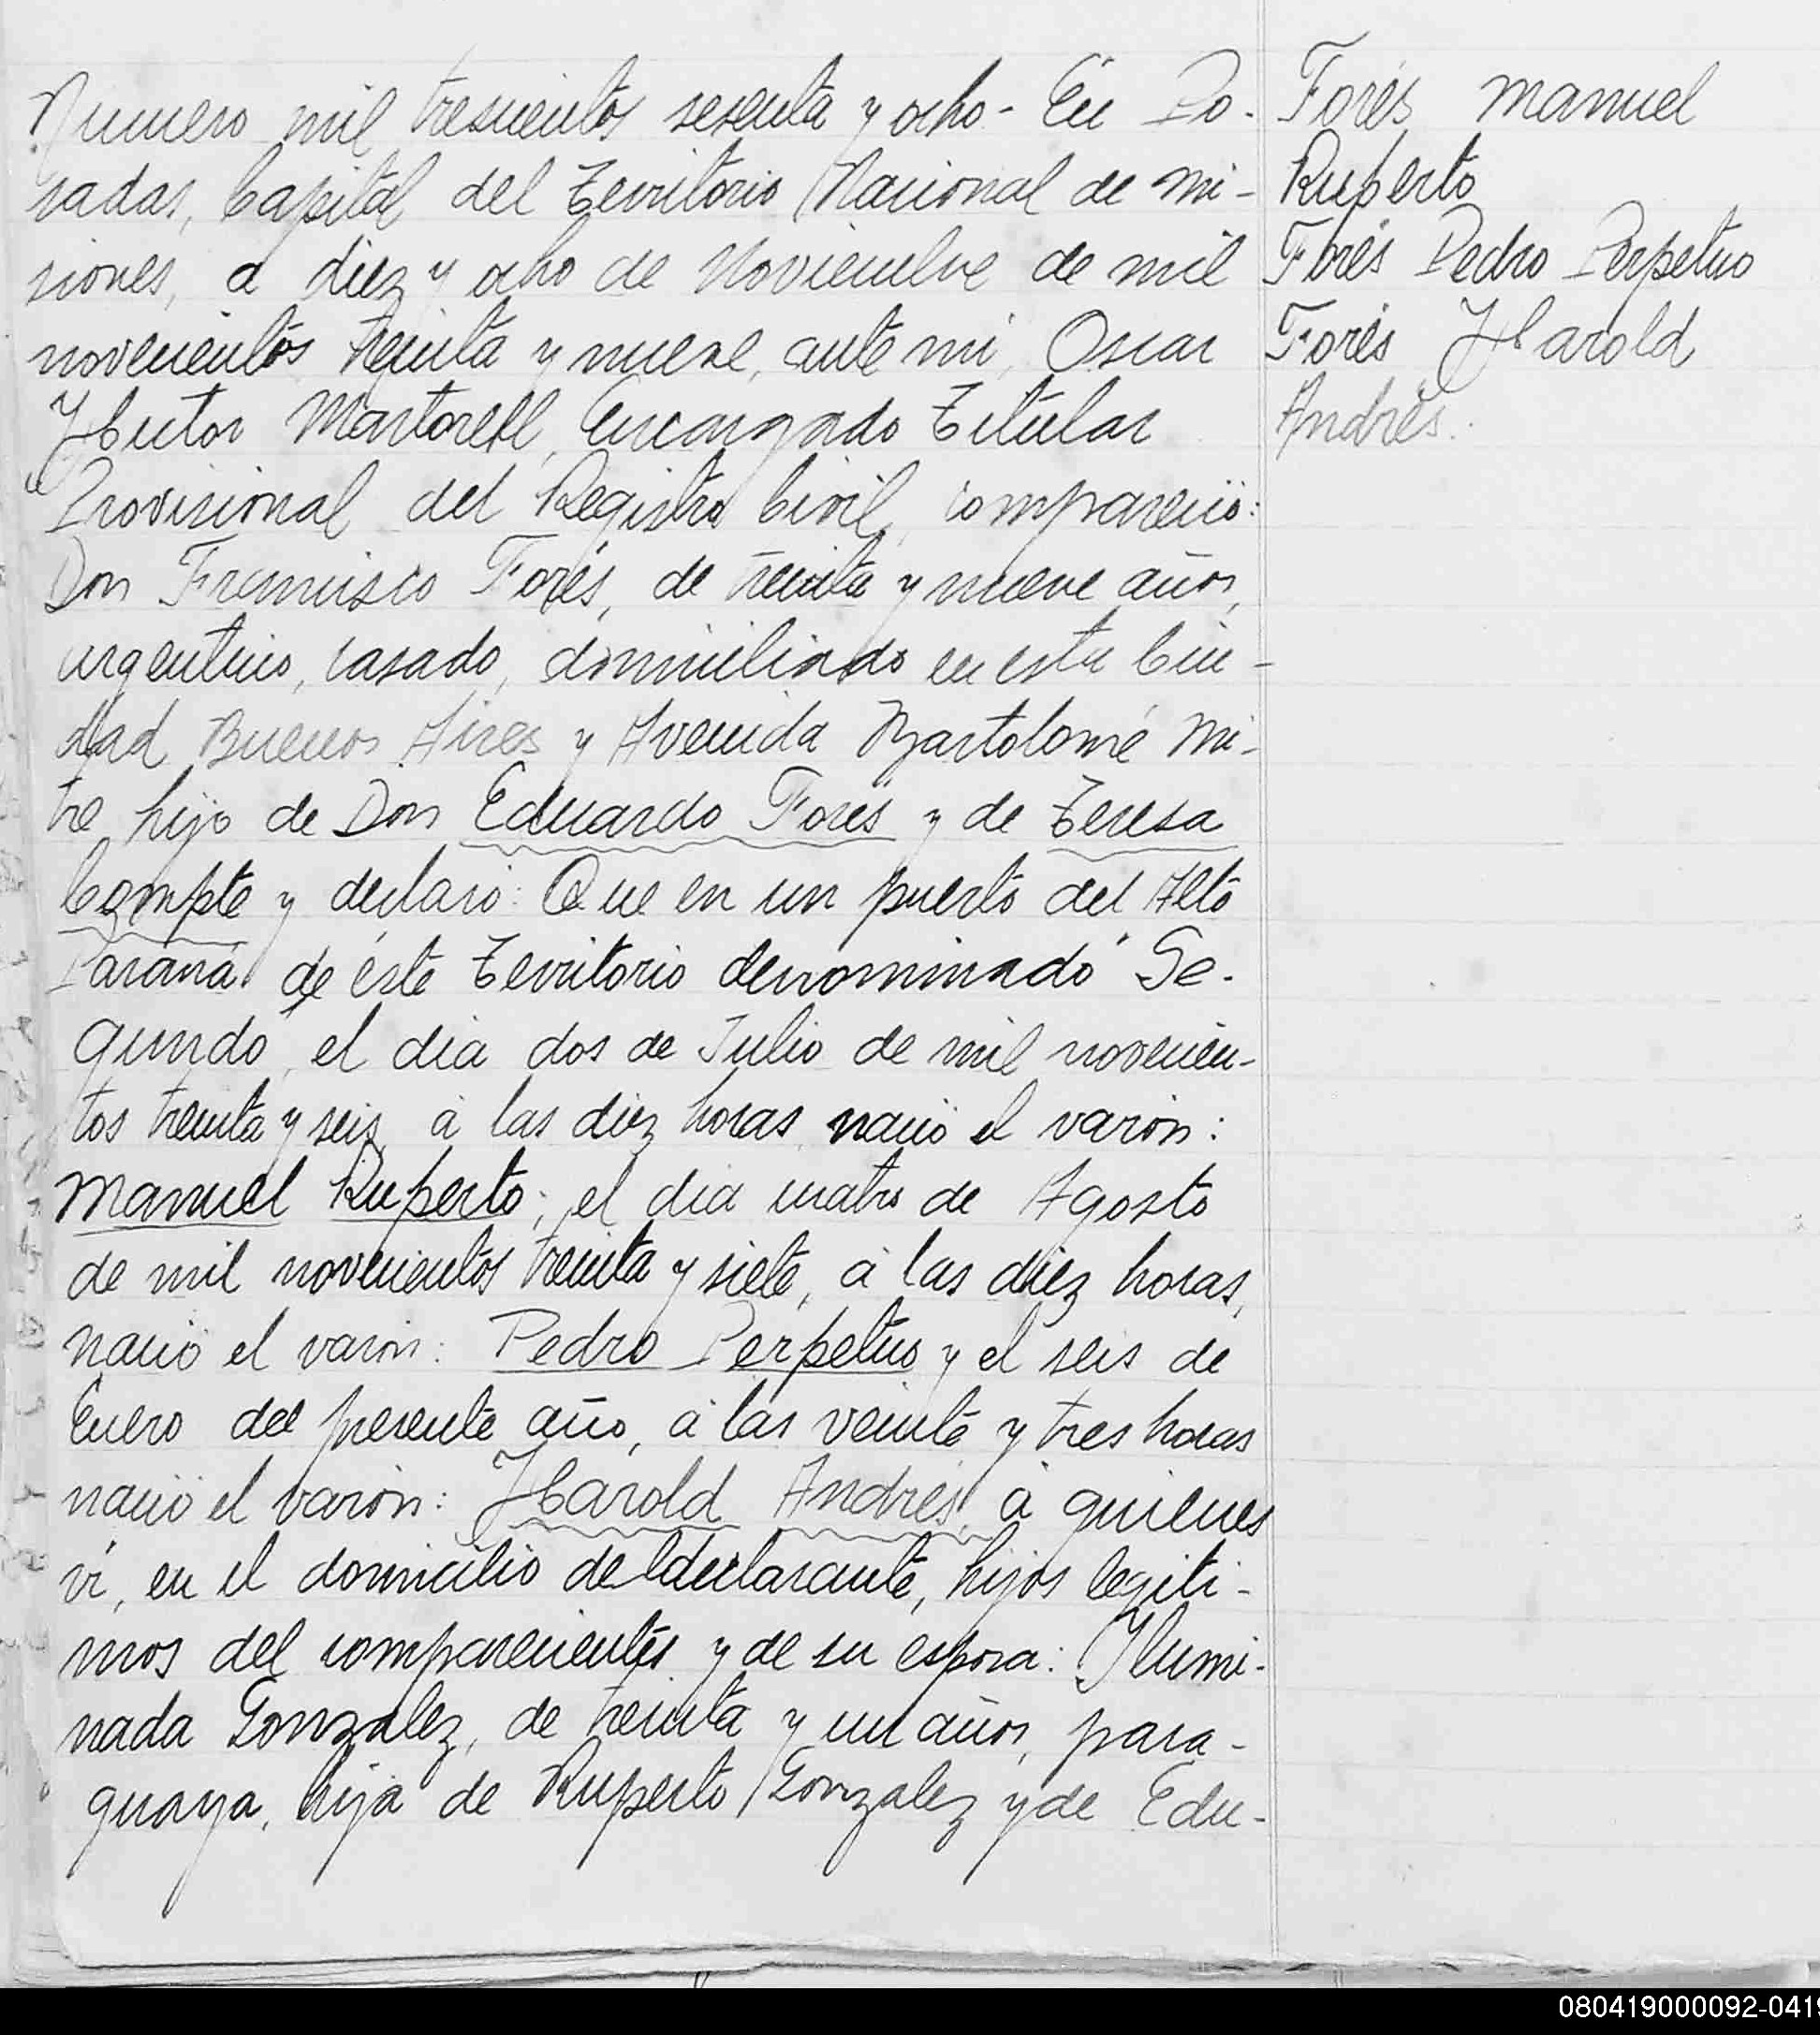 Numero mil trescientos sesenta y ocho - En Po-
sadas, Capital del Territorio Nacional de Mi-
siones, a diez y ocho de Noviembre de mil
novecientos treinta y nueve, ante mi, Oscar
Hector Martorell, Encargado Titular
Provisional del Registro Civil, compareció:
Don Francisco Forés, de treinta y nueve años,
argentino, casado, domiciliado en esta Ciu-
dad Buenos Aires y Avenida Bartolomé Mi-
tre, hijo de Don Eduardo Forés y de Teresa
Compte y declaró: Que en un puerto del Alto
Paraná de éste Territorio denominado "Se-
gundo", el dia dos de Julio de mil novecien-
tos treinta y seis, á las diez horas nació el varón:
Manuel Ruperto; el dia cuatro de Agosto
de mil novecientos treinta y siete, á las diez horas,
nació el varón: Pedro Perpetuo y el seis de
Enero del presente año, á las veinte y tres horas
nació el varón: Harold Andrés, á quienes
ví, en el domicilio del declarante, hijos legiti-
mos del comparecientes y de su esposa: Ilumi-
nada Gonzalez, de treinta y un años, para-
guaya, hija de Ruperto Gonzalez y de Edu-
Forés Manuel
Ruperto
Forés Pedro Perpetuo
Forés Harold
Andrés.
080419000092-0419